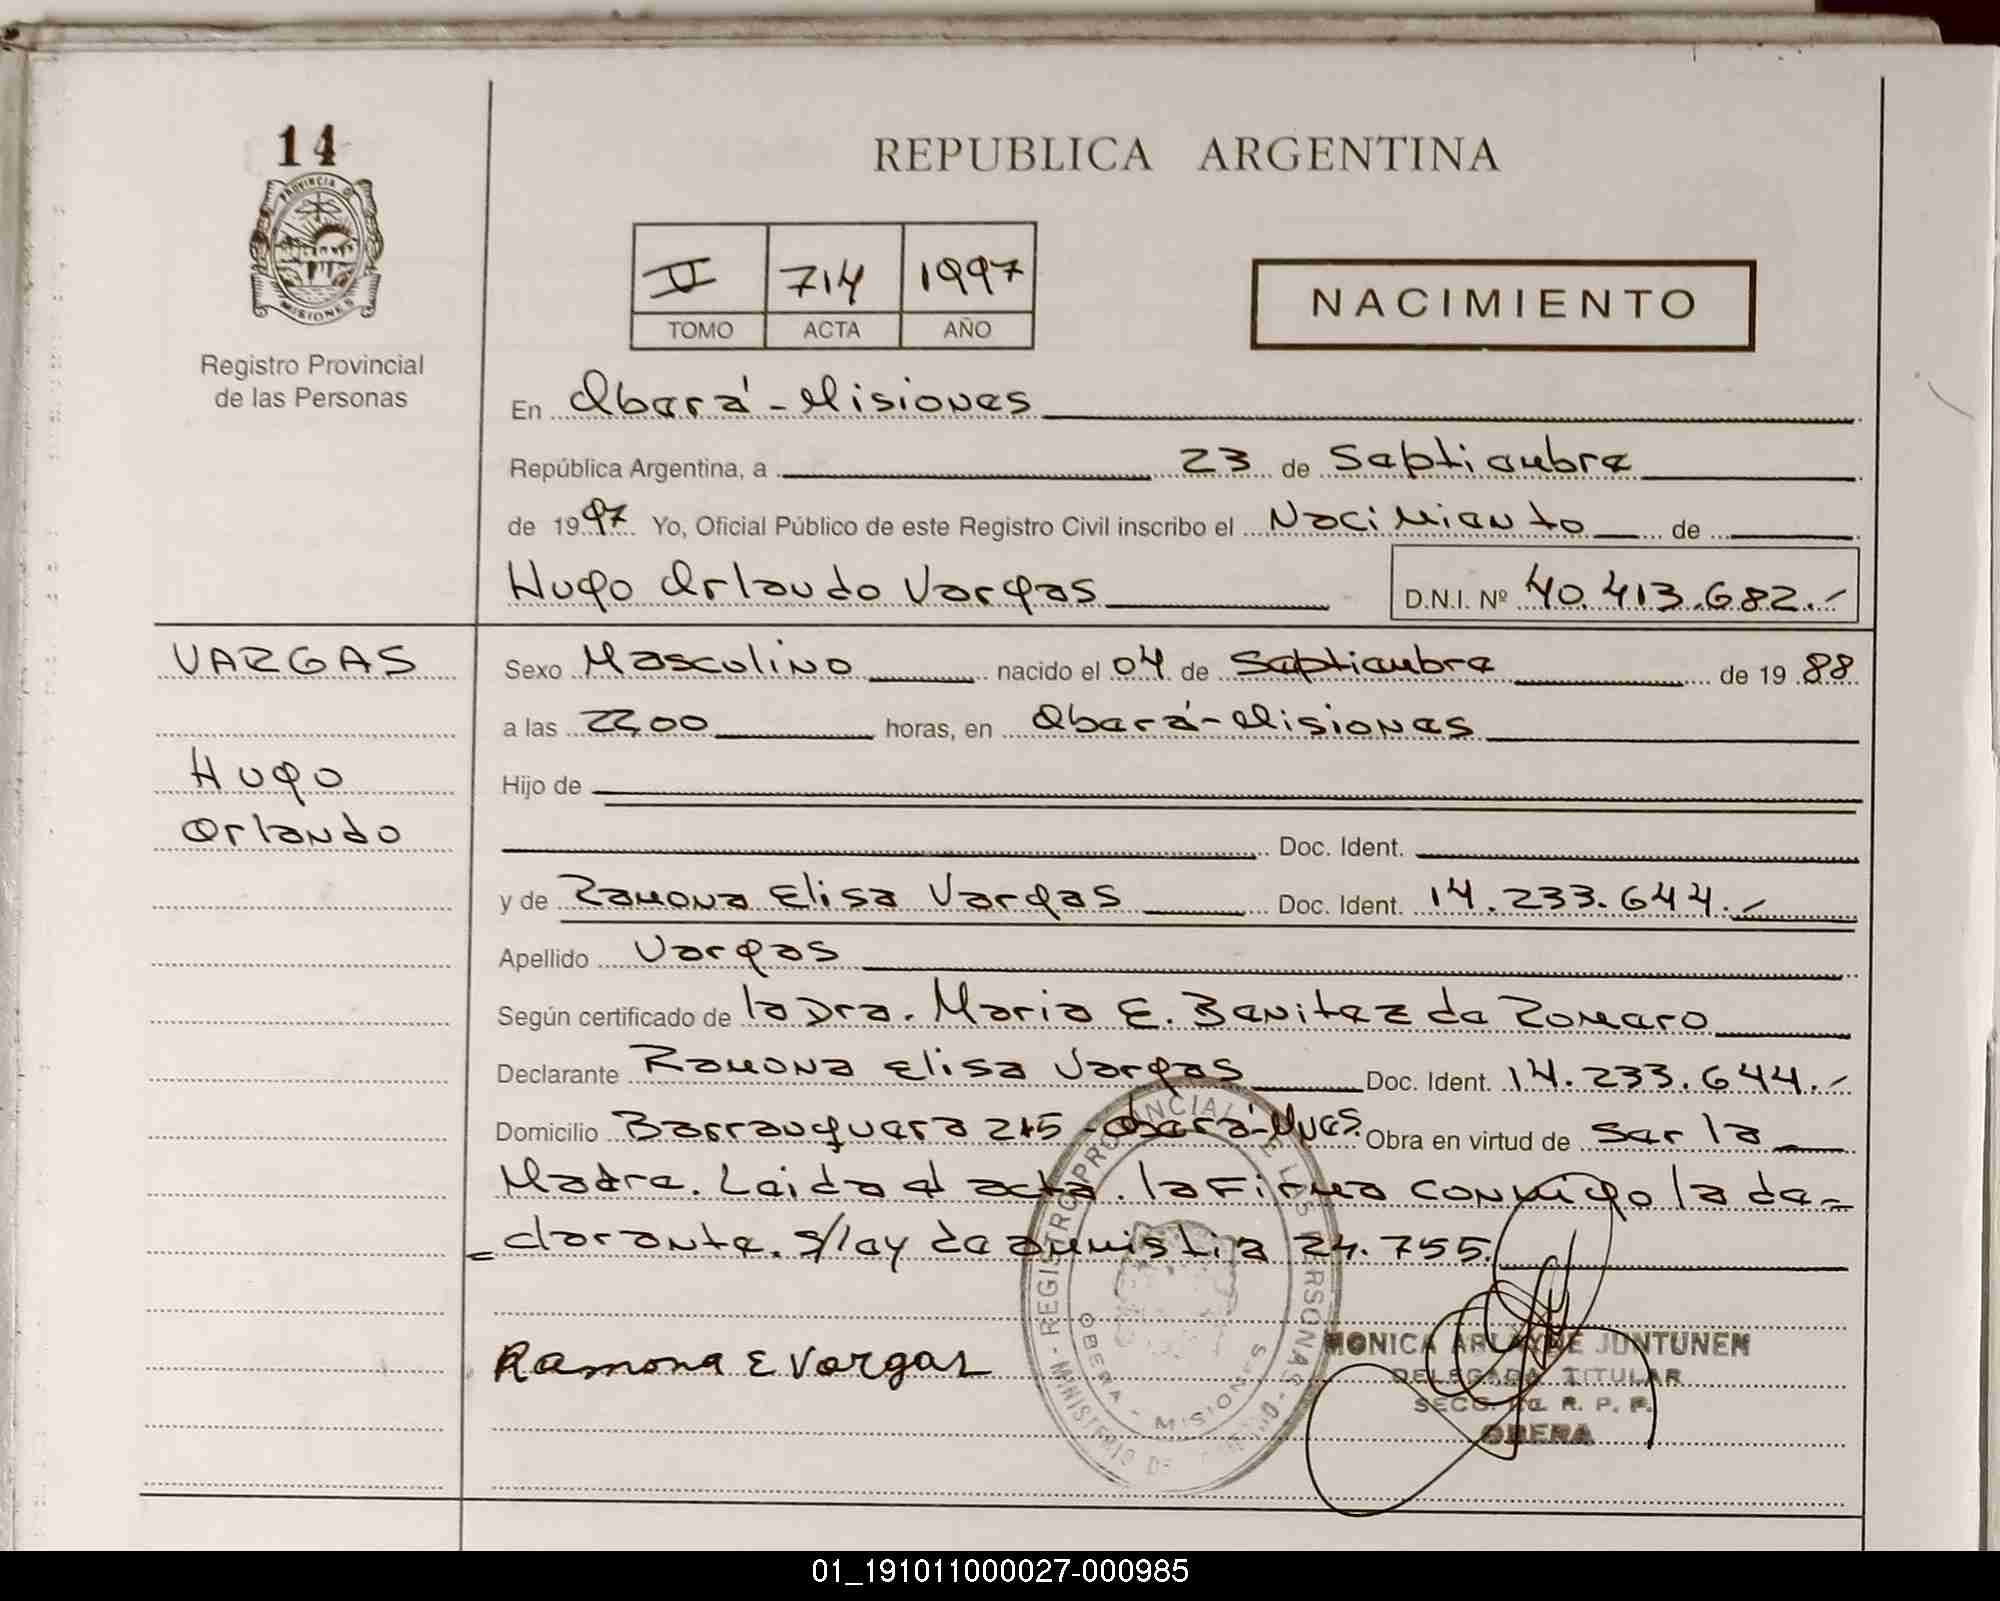 14
PROVINCIA D
MISIONES
Registro Provincial
de las Personas
REPUBLICA ARGENTINA
V 714 1997
TOMO ACTA AÑO
NACIMIENTO
En Oberá - Misiones
República Argentina, a 23 de Septiembre
de 1997 Yo, Oficial Público de este Registro Civil inscribo el Nacimiento de
Hugo Orlando Vargas D.N.I. Nº 40.413.682.-
VARGAS
Hugo
Orlando
Sexo Masculino nacido el 04 de Septiembre de 1988
a las 22,00 horas, en Oberá - Misiones
Hijo de
Doc. Ident.
y de Ramona Elisa Vargas Doc. Ident. 14.233.644.-
Apellido Vargas
Según certificado de la Dra. Maria E. Benitez de Romero
Declarante Ramona Elisa Vargas Doc. Ident. 14.233.644.-
Domicilio Barranquera 215 - Oberá - Mnes. Obra en virtud de ser la
Madre. Leida el acta. la Firma conmigo la de-
-clarante. s/ley de amnistia 24.755.
Ramona E Vargas
REGISTRO PROVINCIAL DE LAS PERSONAS - MINISTERIO DE
OBERA - MISIONES
MONICA JUNTUNEN
DELEGADA TITULAR
SECC. R. P. P.
OBERA
01_191011000027-000985